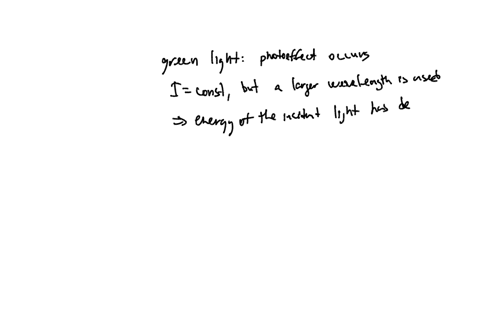 green light: photoeffect occurs
I = const, but a larger wavelength is used
⇒ energy of the incident light has de